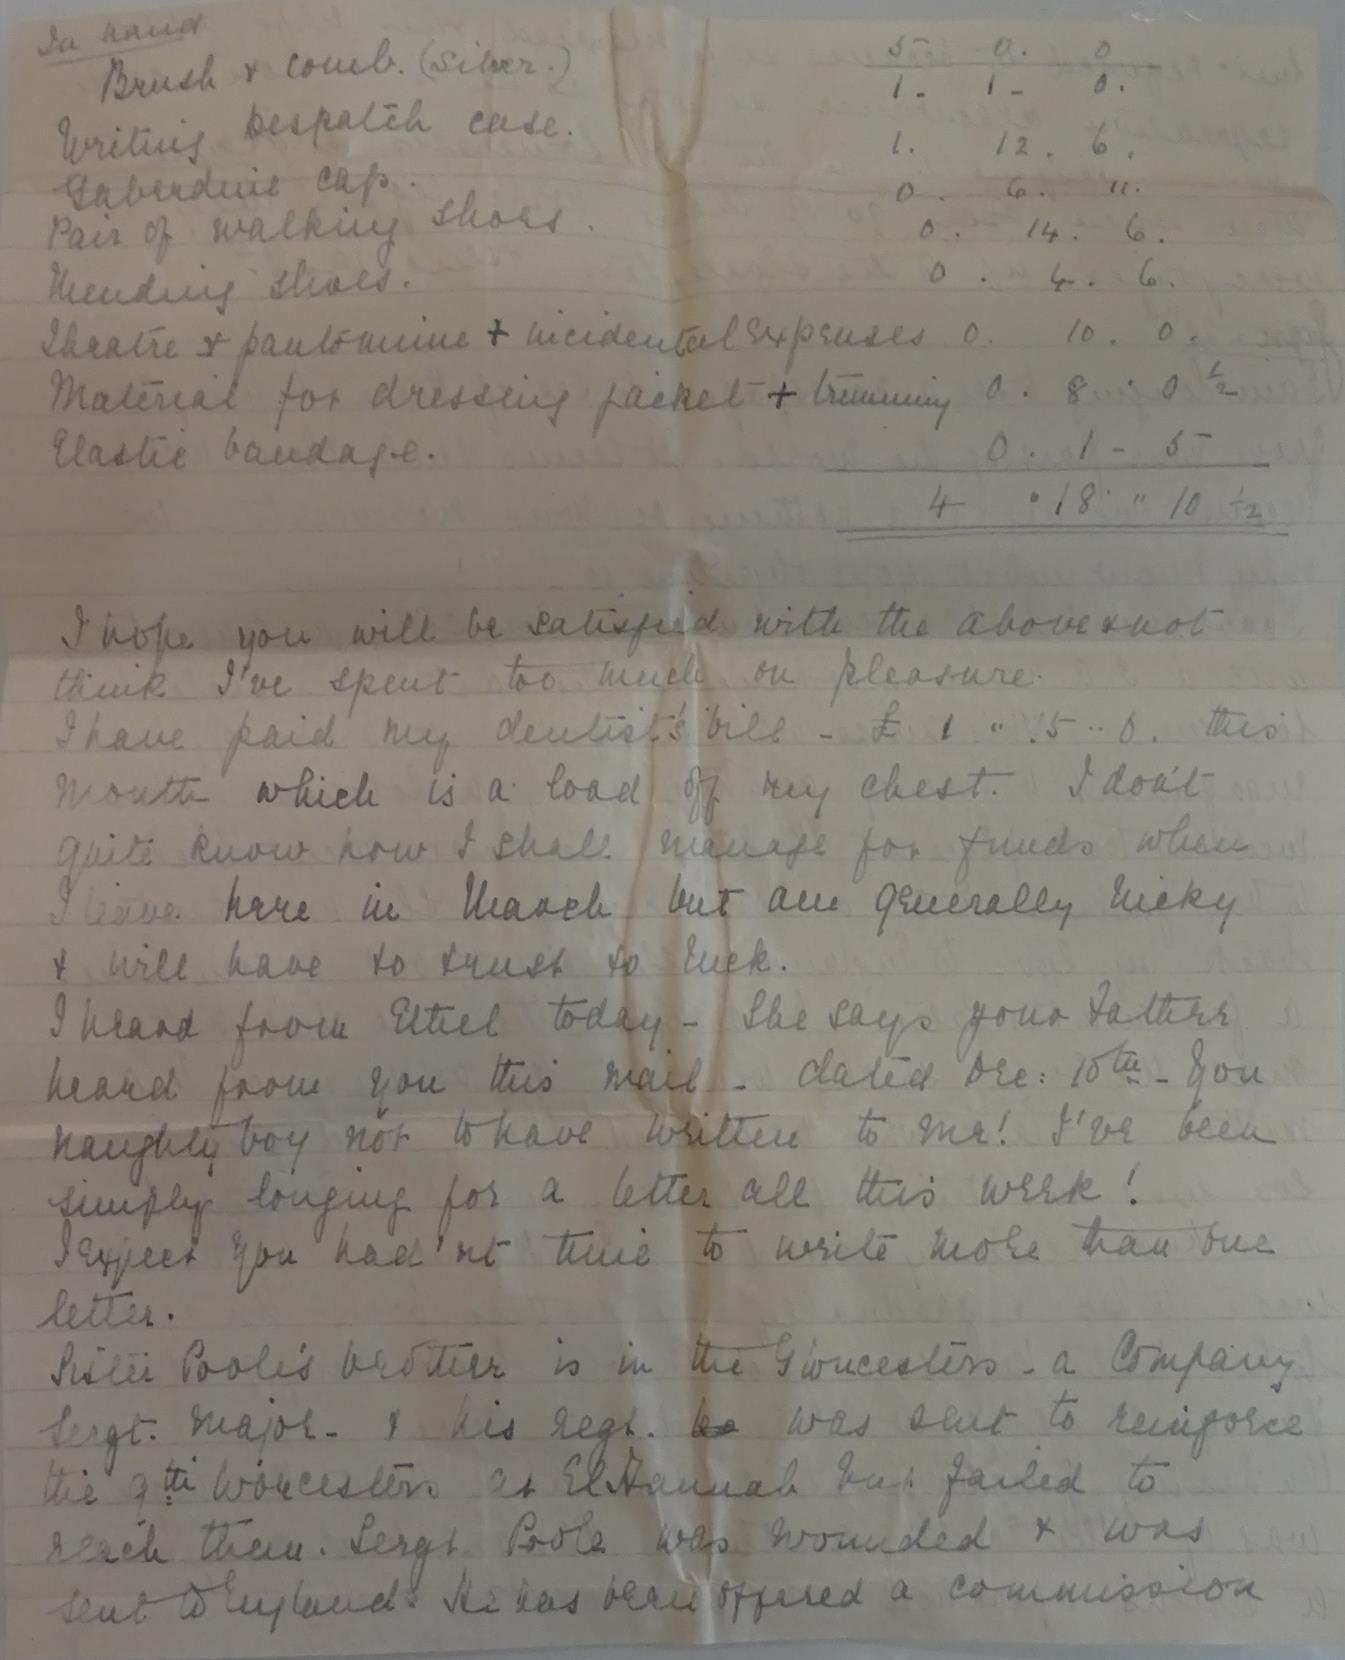 In hand 5 0. 0
Brush & comb. (Silver.) 1 - 1 - 0.
Writing Despatch case. 1. 12. 6.
Gaberdine cap. 0. 6. 11.
Pair of walking shoes. 0. 14. 6.
Mending shoes. 0. 4. 6.
Theatre & pantomime + incidental Expenses 0. 10. 0.
Material for dressing jacket + trimming 0. 8. 0 1/2
Elastic bandage. 0. 1 - 5
4 " 18 " 10 1/2
I hope you will be satisfied with the above & not
think I've spent too much on pleasure.
I have paid my dentist's bill - £ 1 " 5 " 0. this
month which is a load off my chest. I don't
quite know how I shall manage for funds when
I leave here in March but am generally lucky
& will have to trust to luck.
I heard from Ethel today - She says your Father
heard from you this mail - dated Dec: 15th - You
naughty boy not to have written to me! I've been
simply longing for a letter all this week!
I expect you had'nt time to write more than one
letter.
Sister Poole's brother is in the Gloucesters - a Company
Sergt. Major - & his regt. was sent to reinforce
the 9th Worcesters at El Hannah but failed to
reach them. Sergt Poole was wounded & was
sent to England. He has been offered a commission